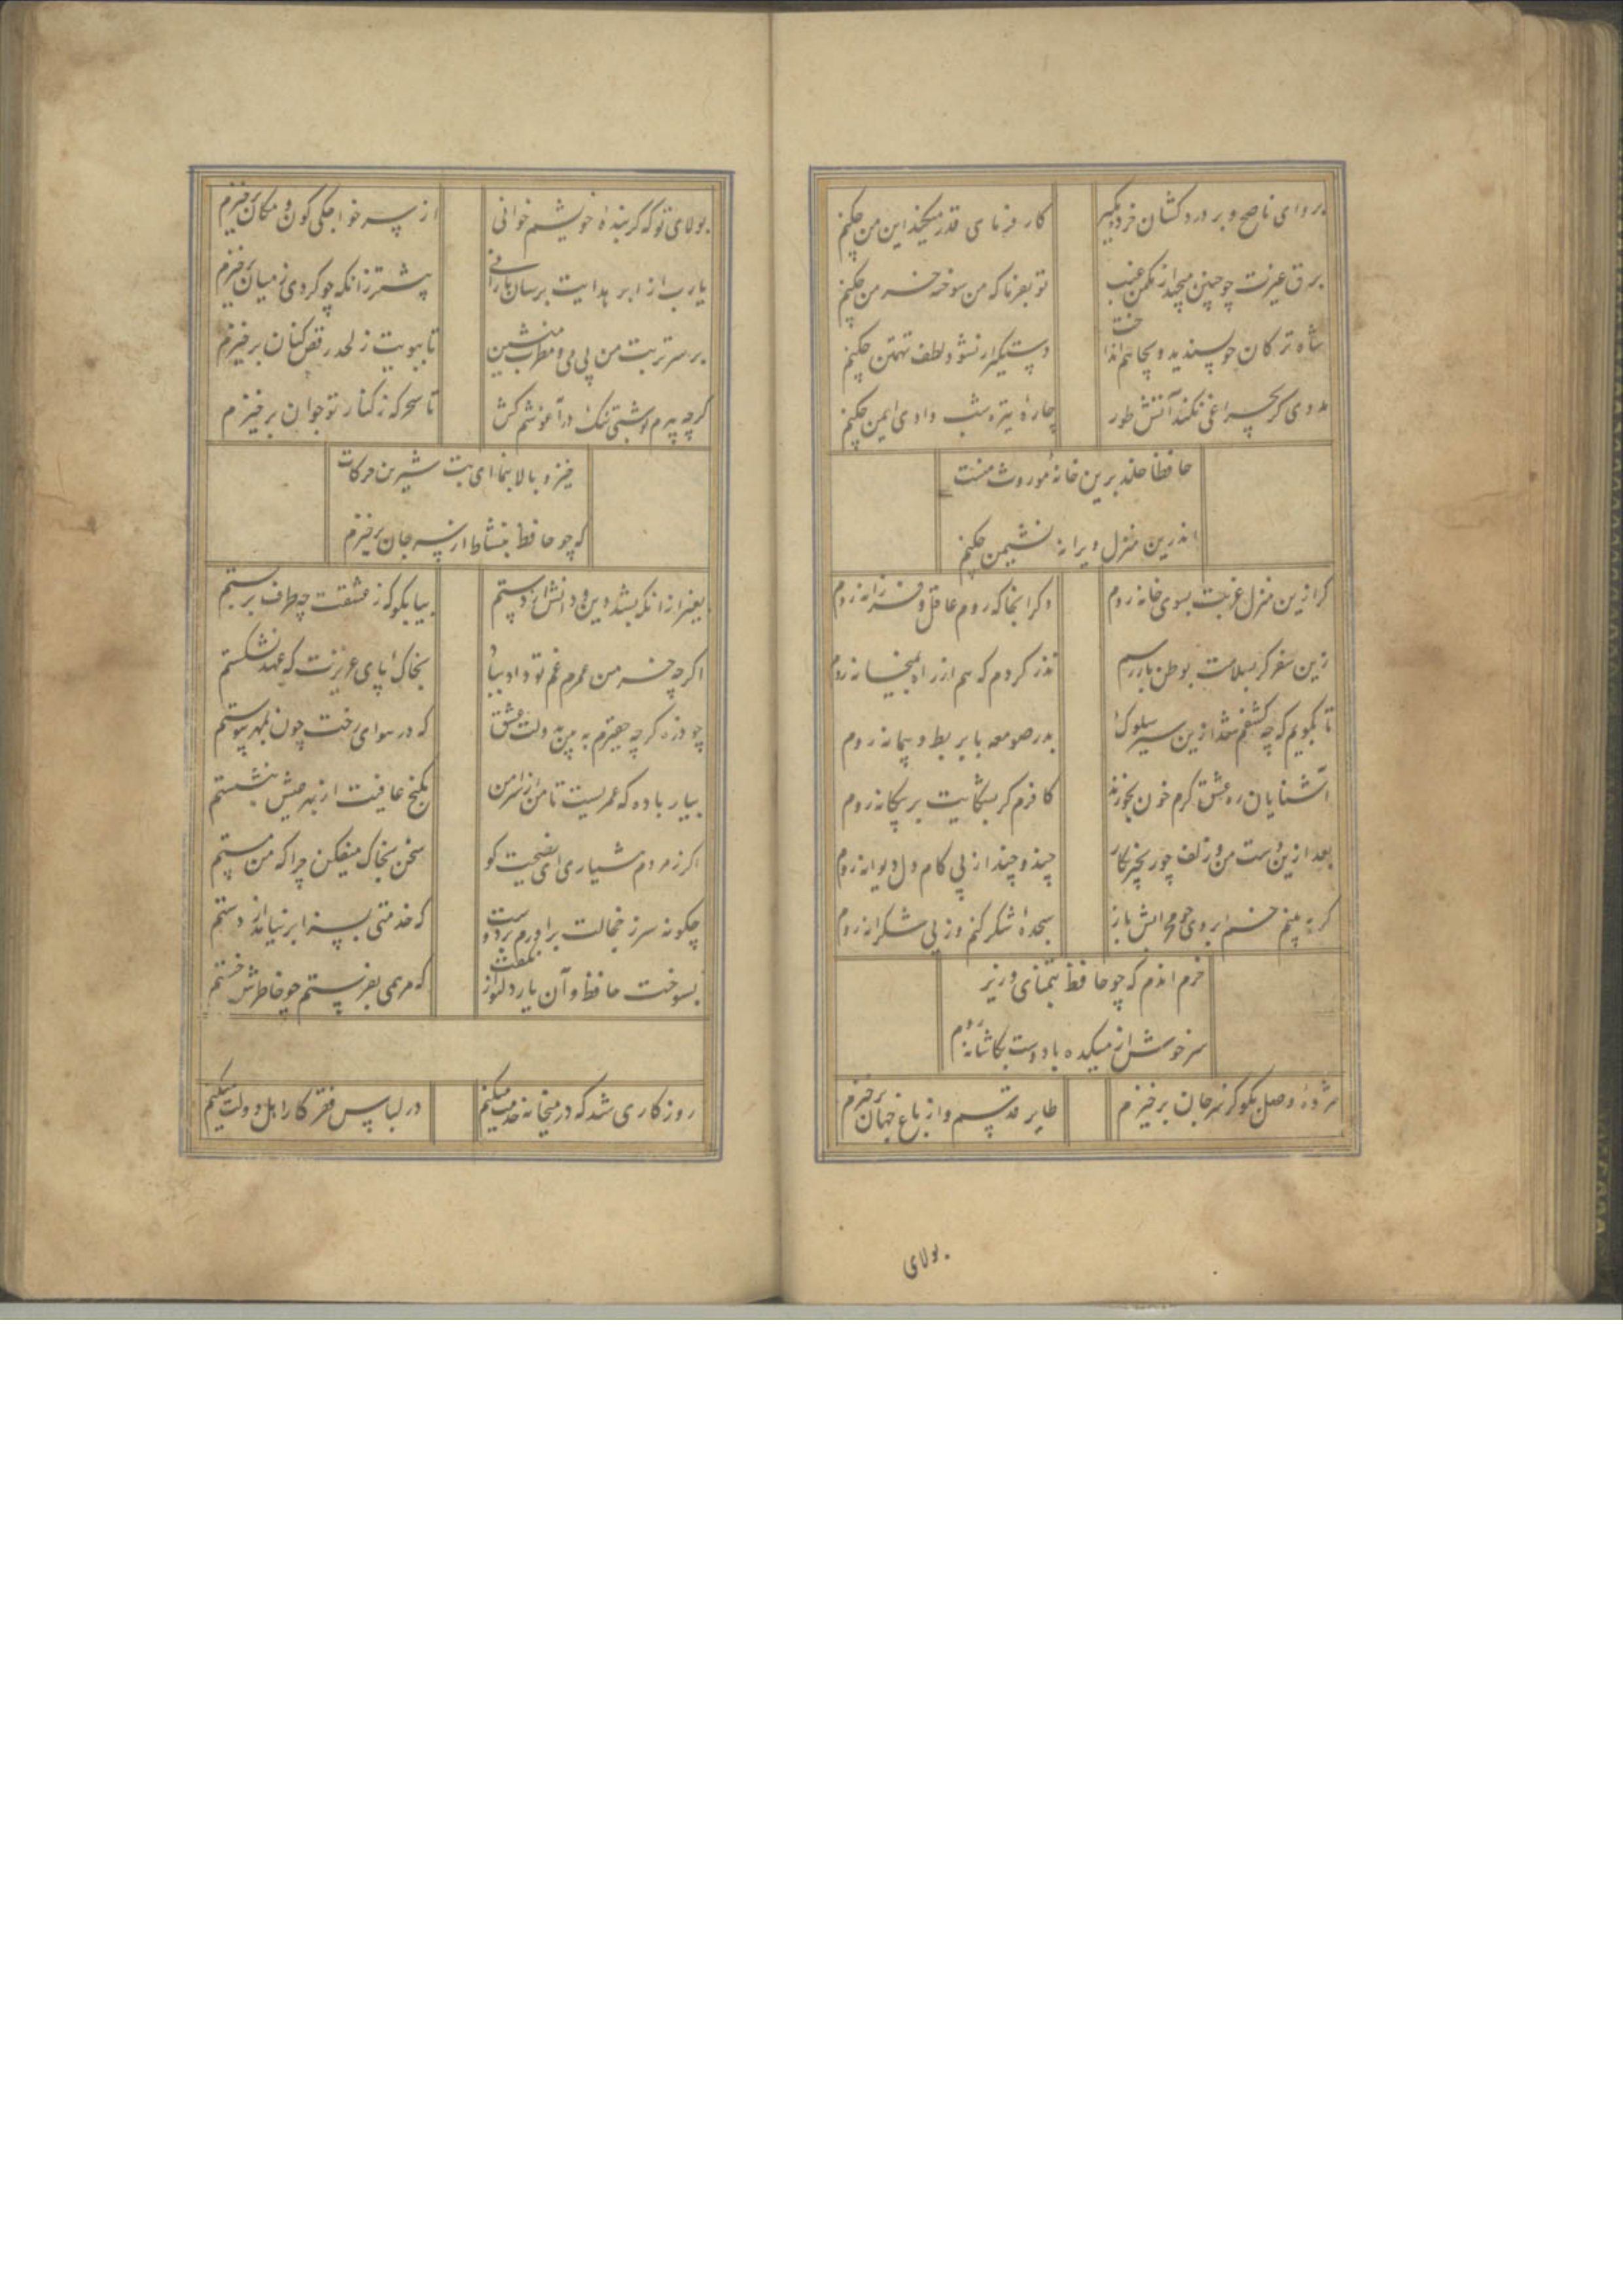 برو ای ناصح و بر درد کشان خرده مگیر
کار فرمای قدر میکند این من چکنم
برق غیرت چو چنین میجهد از مکمن غیب
تو بفرما که من سوخته خرمن چکنم
شاه ترکان چو پسندید و بچاهم انداخت
دستگیر ار نشود لطف تهمتن چکنم
مددی گر بچراغی نکند آتش طور
چارهٔ تیره شب وادی ایمن چکنم
حافظا خلد برین خانهٔ موروث منست
اندرین منزل ویرانه نشیمن چکنم
گر ازین منزل غربت بسوی خانه روم
دگر آنجا که روم عاقل و فرزانه روم
زین سفر گر بسلامت بوطن باز رسم
نذر کردم که هم از راه بمیخانه روم
تا بگویم که چه کشفم شد ازین سیر سلوک
بدر صومعه با بربط و پیمانه روم
آشنایان ره عشق گرم خون بخورند
کافرم گر بشکایت بر بیگانه روم
بعد ازین دست من و زلف چو زنجیر نگار
چند و چند از پی کام دل دیوانه روم
گر به بینم خم ابروی چو محرابش باز
سجدهٔ شکر کنم وز پی شکرانه روم
خرم آندم که چو حافظ بتمنای وزیر
سرخوش از میکده با دوست بکاشانه روم
مژدهٔ وصل تو گو کز سر جان برخیزم
طایر قدسم و از باغ جهان برخیزم
بولای
بولای تو که گر بندهٔ خویشم خوانی
از سر خواجگی کون و مکان برخیزم
یا رب از ابر هدایت برسان بارانی
پیشتر زانکه چو گردی ز میان برخیزم
بر سر تربت من بی می و مطرب منشین
تا ببویت ز لحد رقص کنان برخیزم
گرچه پیرم تو شبی تنگ در آغوشم کش
تا سحر که ز کنار تو جوان برخیزم
خیز و بالا بنما ای بت شیرین حرکات
که چو حافظ بنشاط از سر جان برخیزم
بغیر از آنکه بشد دین و دانش از دستم
بیا بگو که ز عشقت چه طرف بر بستم
اگرچه خرمن عمرم غم تو داد بباد
بخاک پای عزیزت که عهد نشکستم
چو ذره گرچه حقیرم به بین بدولت عشق
که در هوای رخت چون بمهر پیوستم
بیار باده که عمریست تا من از سر امن
بکنج عافیت از بهر عیش ننشستم
اگر ز مردم هشیاری ای نصیحت گو
سخن بخاک میفکن چرا که من مستم
چگونه سر ز خجالت برآورم بر دوست
که خدمتی بسزا بر نیامد از دستم
بسوخت حافظ و آن یار دلنواز نگفت
که مرهمی بفرستم چو خاطرش خستم
روزکاری شد که در میخانه خدمت میکنم
در لباس فقر کار اهل دولت میکنم